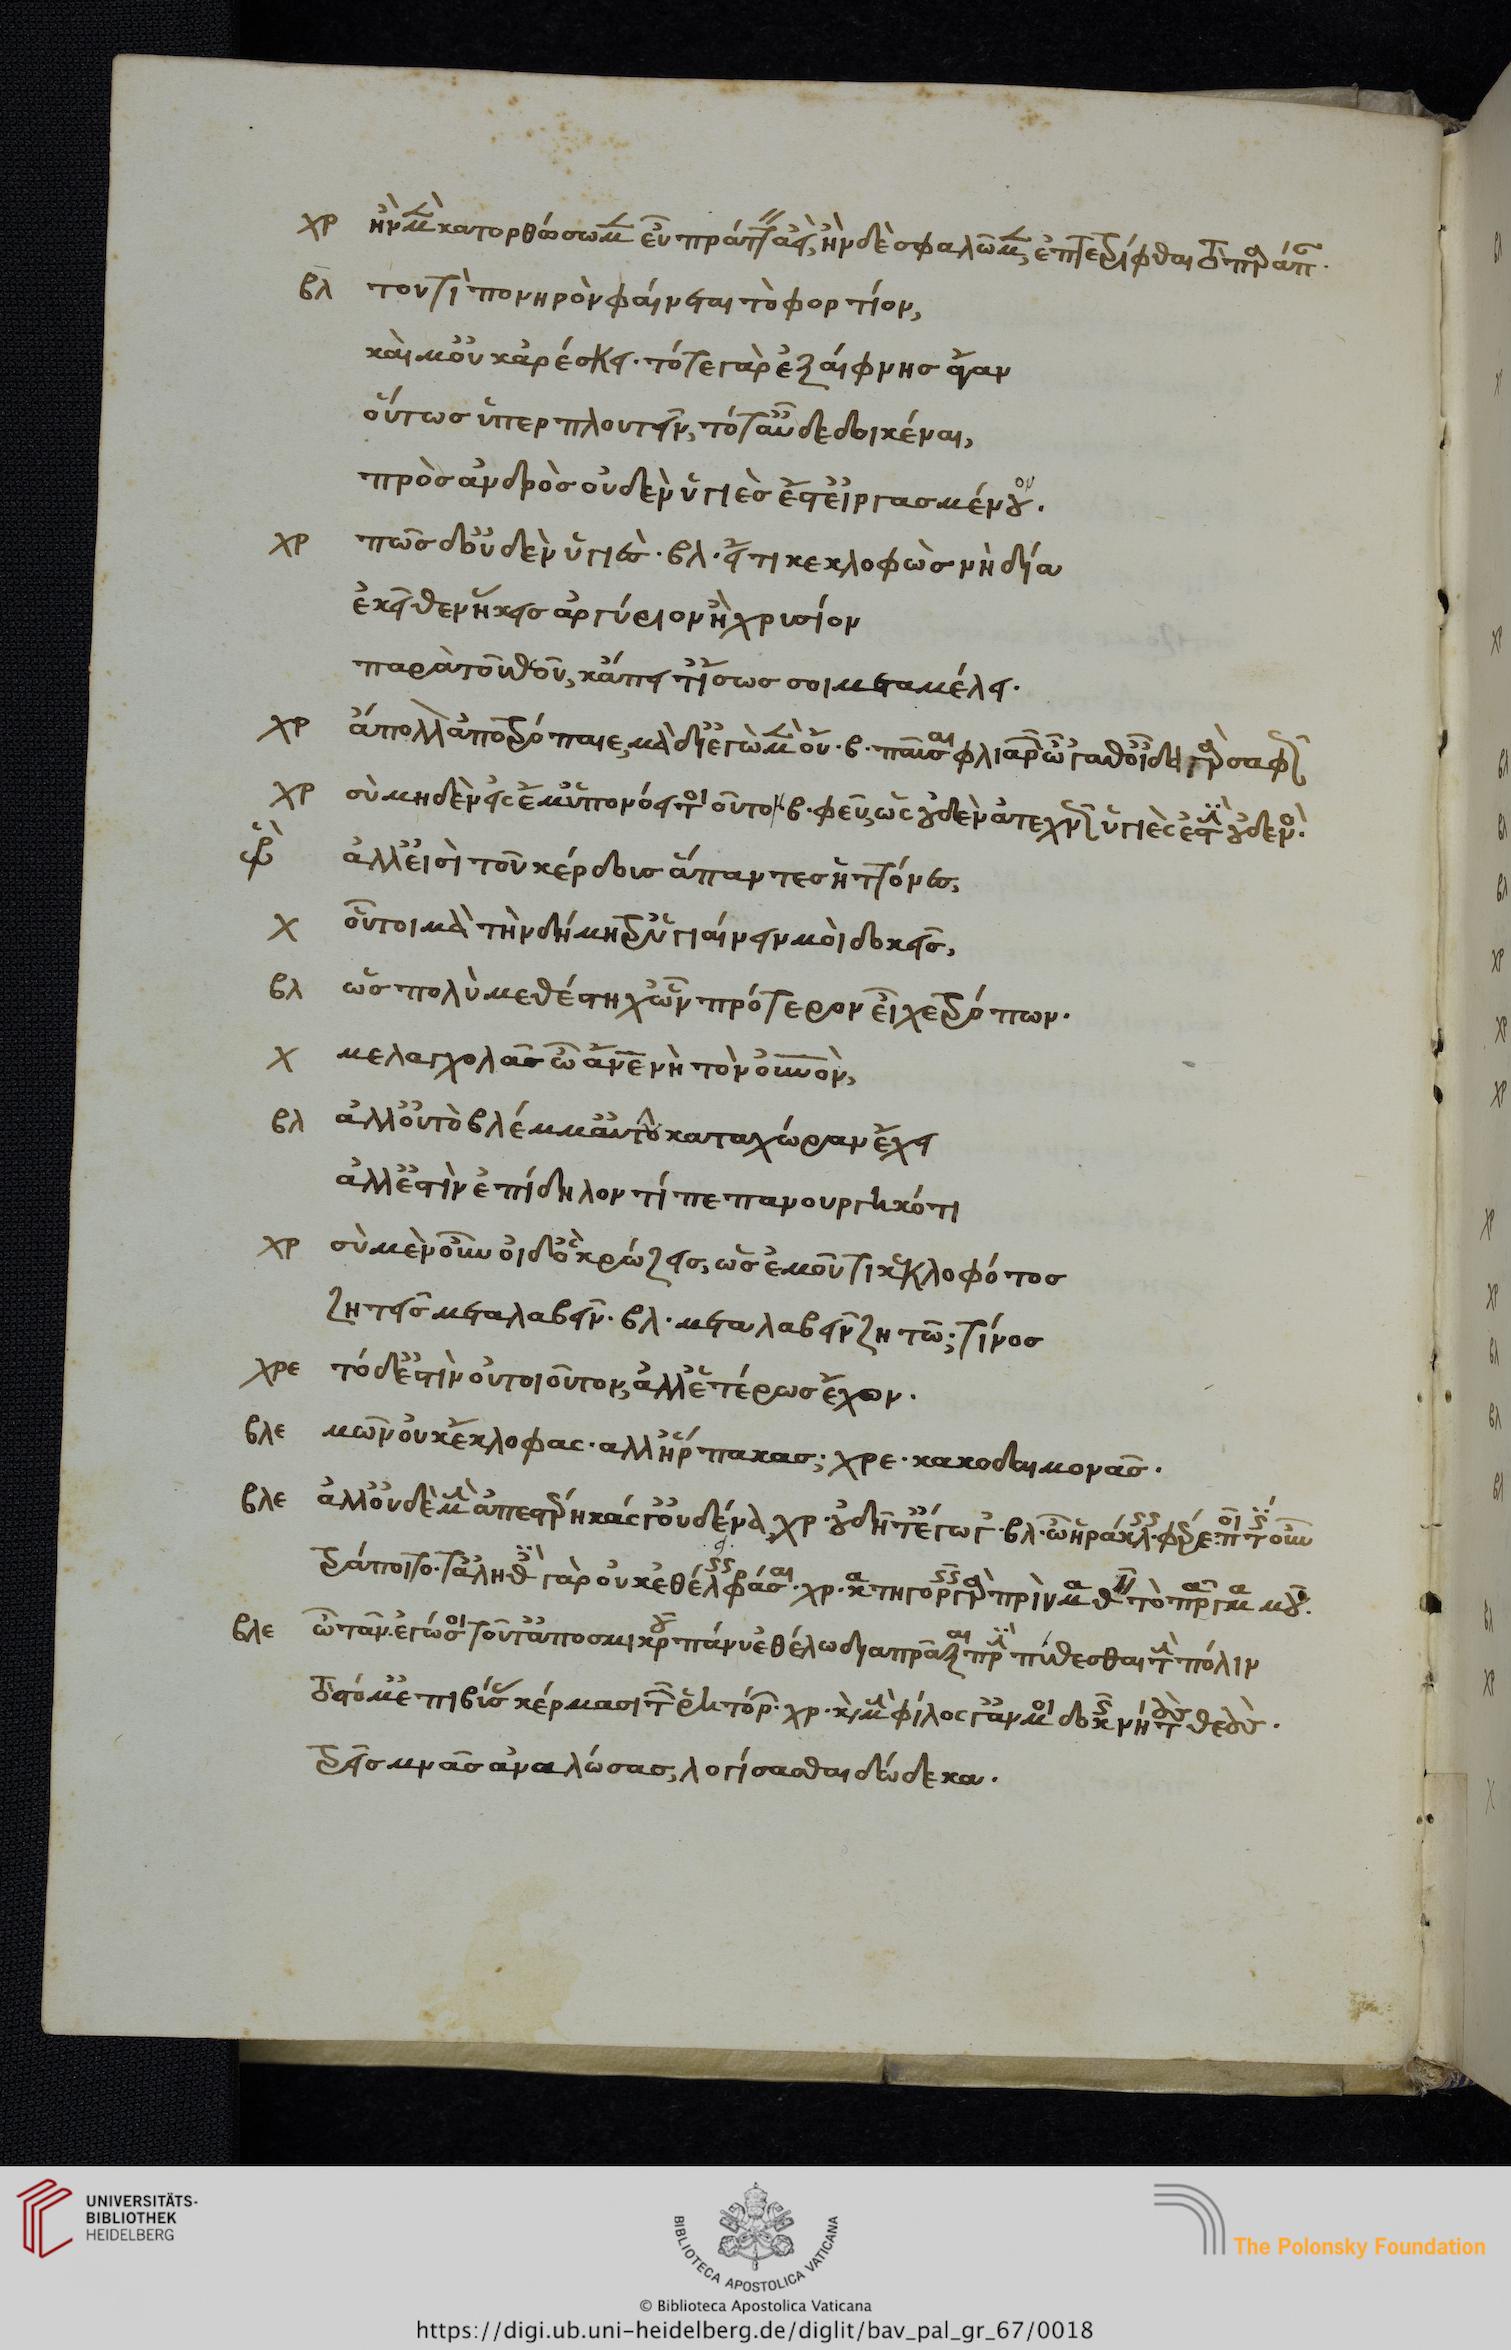 χρ ἢν μὲν κατορθώσωμεν εὖ πράττειν ἀεὶ, ἢν δὲ σφαλῶμεν, ἐπιτετρίφθαι τὸ παράπαν.
βλ τουτὶ πονηρὸν φαίνεται τὸ φορτίον,
καὶ μ' οὐκ ἀρέσκει· τό τε γὰρ ἐξαίφνης ἄγαν
οὕτως ὑπερπλουτεῖν, τό τ' αὖ δεδοικέναι,
πρὸς ἀνδρὸς οὐδὲν ὑγιὲς ἔστ' εἰργασμένου.
χρ πῶς δ' οὐδὲν ὑγιὲς· βλ· εἴ τι κεκλοφὼς νὴ δία
ἐκεῖθεν ἥκεις ἀργύριον ἢ χρυσίον
παρὰ τοῦ θεοῦ, κἄπειτ' ἴσως σοι μεταμέλει·
χρ ἄπολλον ἀποτρόπαιε, μὰ δι' ἐγὼ μὲν οὔ· β· παῦσαι φλυαρῶν ὦ 'γαθ' οἶδα γὰρ σαφῶς
χρ σὺ μηδὲν εἰς ἔμ' ὑπονόει τοιοῦτο· β· φεῦ, ὡς οὐδὲν ἀτεχνῶς ὑγιές ἐστιν οὐδενός·
ἀλλ' εἰσὶ τοῦ κέρδους ἅπαντες ἥττονες,
χ οὔτοι μὰ τὴν δήμητρ' ὑγιαίνειν μοὶ δοκεῖς,
βλ ὡς πολὺ μεθέστηχ' ὧν πρότερον εἶχε τρόπων.
χ μελαγχολᾶς ὦ ἄνθρωπε νὴ τὸν οὐρανὸν,
βλ ἀλλ' οὐ τὸ βλέμμ' αὐτὸ κατα χώραν ἔχει
ἀλλ' ἐστὶν ἐπίδηλον τί πεπανουργηκότι
χρ σὺ μὲν οὖν οἶδ' ὃ κρώζεις, ὡς ἐμοῦ τι κεκλοφότος
ζητεῖς μεταλαβεῖν. βλ. μεταλαβεῖν ζητῶ; τίνος
χρε τό δ' ἐστὶν οὐ τοιοῦτον, ἀλλ' ἑτέρως ἔχον.
βλε μῶν οὐ κέκλοφας· αλλ' ἥρπακας; χρε· κακοδαιμονᾶς.
βλε ἀλλ' οὐδὲ μὴν ἀπεστέρηκάς γ' οὐδένα, χρ· οὐ δῆτ' ἔγωγ'· βλ· ὦ ἡράκλεις· φέρε· ποῖ τίς οὖν
τράποιτο· τἀληθὲς γὰρ οὐκ ἐθέλει φράσαι· χρ· κατηγορεῖς γὰρ πρὶν μαθεῖν τὸ πρᾶγμα μου.
βλε ὦ τᾶν ἐγώ σοι τοῦτ' ἀπο σμικροῦ πάνυ ἐθέλω διαπρᾶξαι πρὶν πυθέσθαι τὴν πόλιν
τὸ στόμ' ἐπιβύσας κέρμασι τῶν ῥητόρων· χρ· καὶ μὴν φίλος γ' ἄν μοι δοκεῖς νὴ τοὺς θεοὺς.
τρεῖς μνᾶς ἀναλώσας, λογίσασθαι δώδεκα.
UNIVERSITÄTS-
BIBLIOTHEK
HEIDELBERG
BIBLIOTECA APOSTOLICA VATICANA
The Polonsky Foundation
© Biblioteca Apostolica Vaticana
https://digi.ub.uni-heidelberg.de/diglit/bav_pal_gr_67/0018